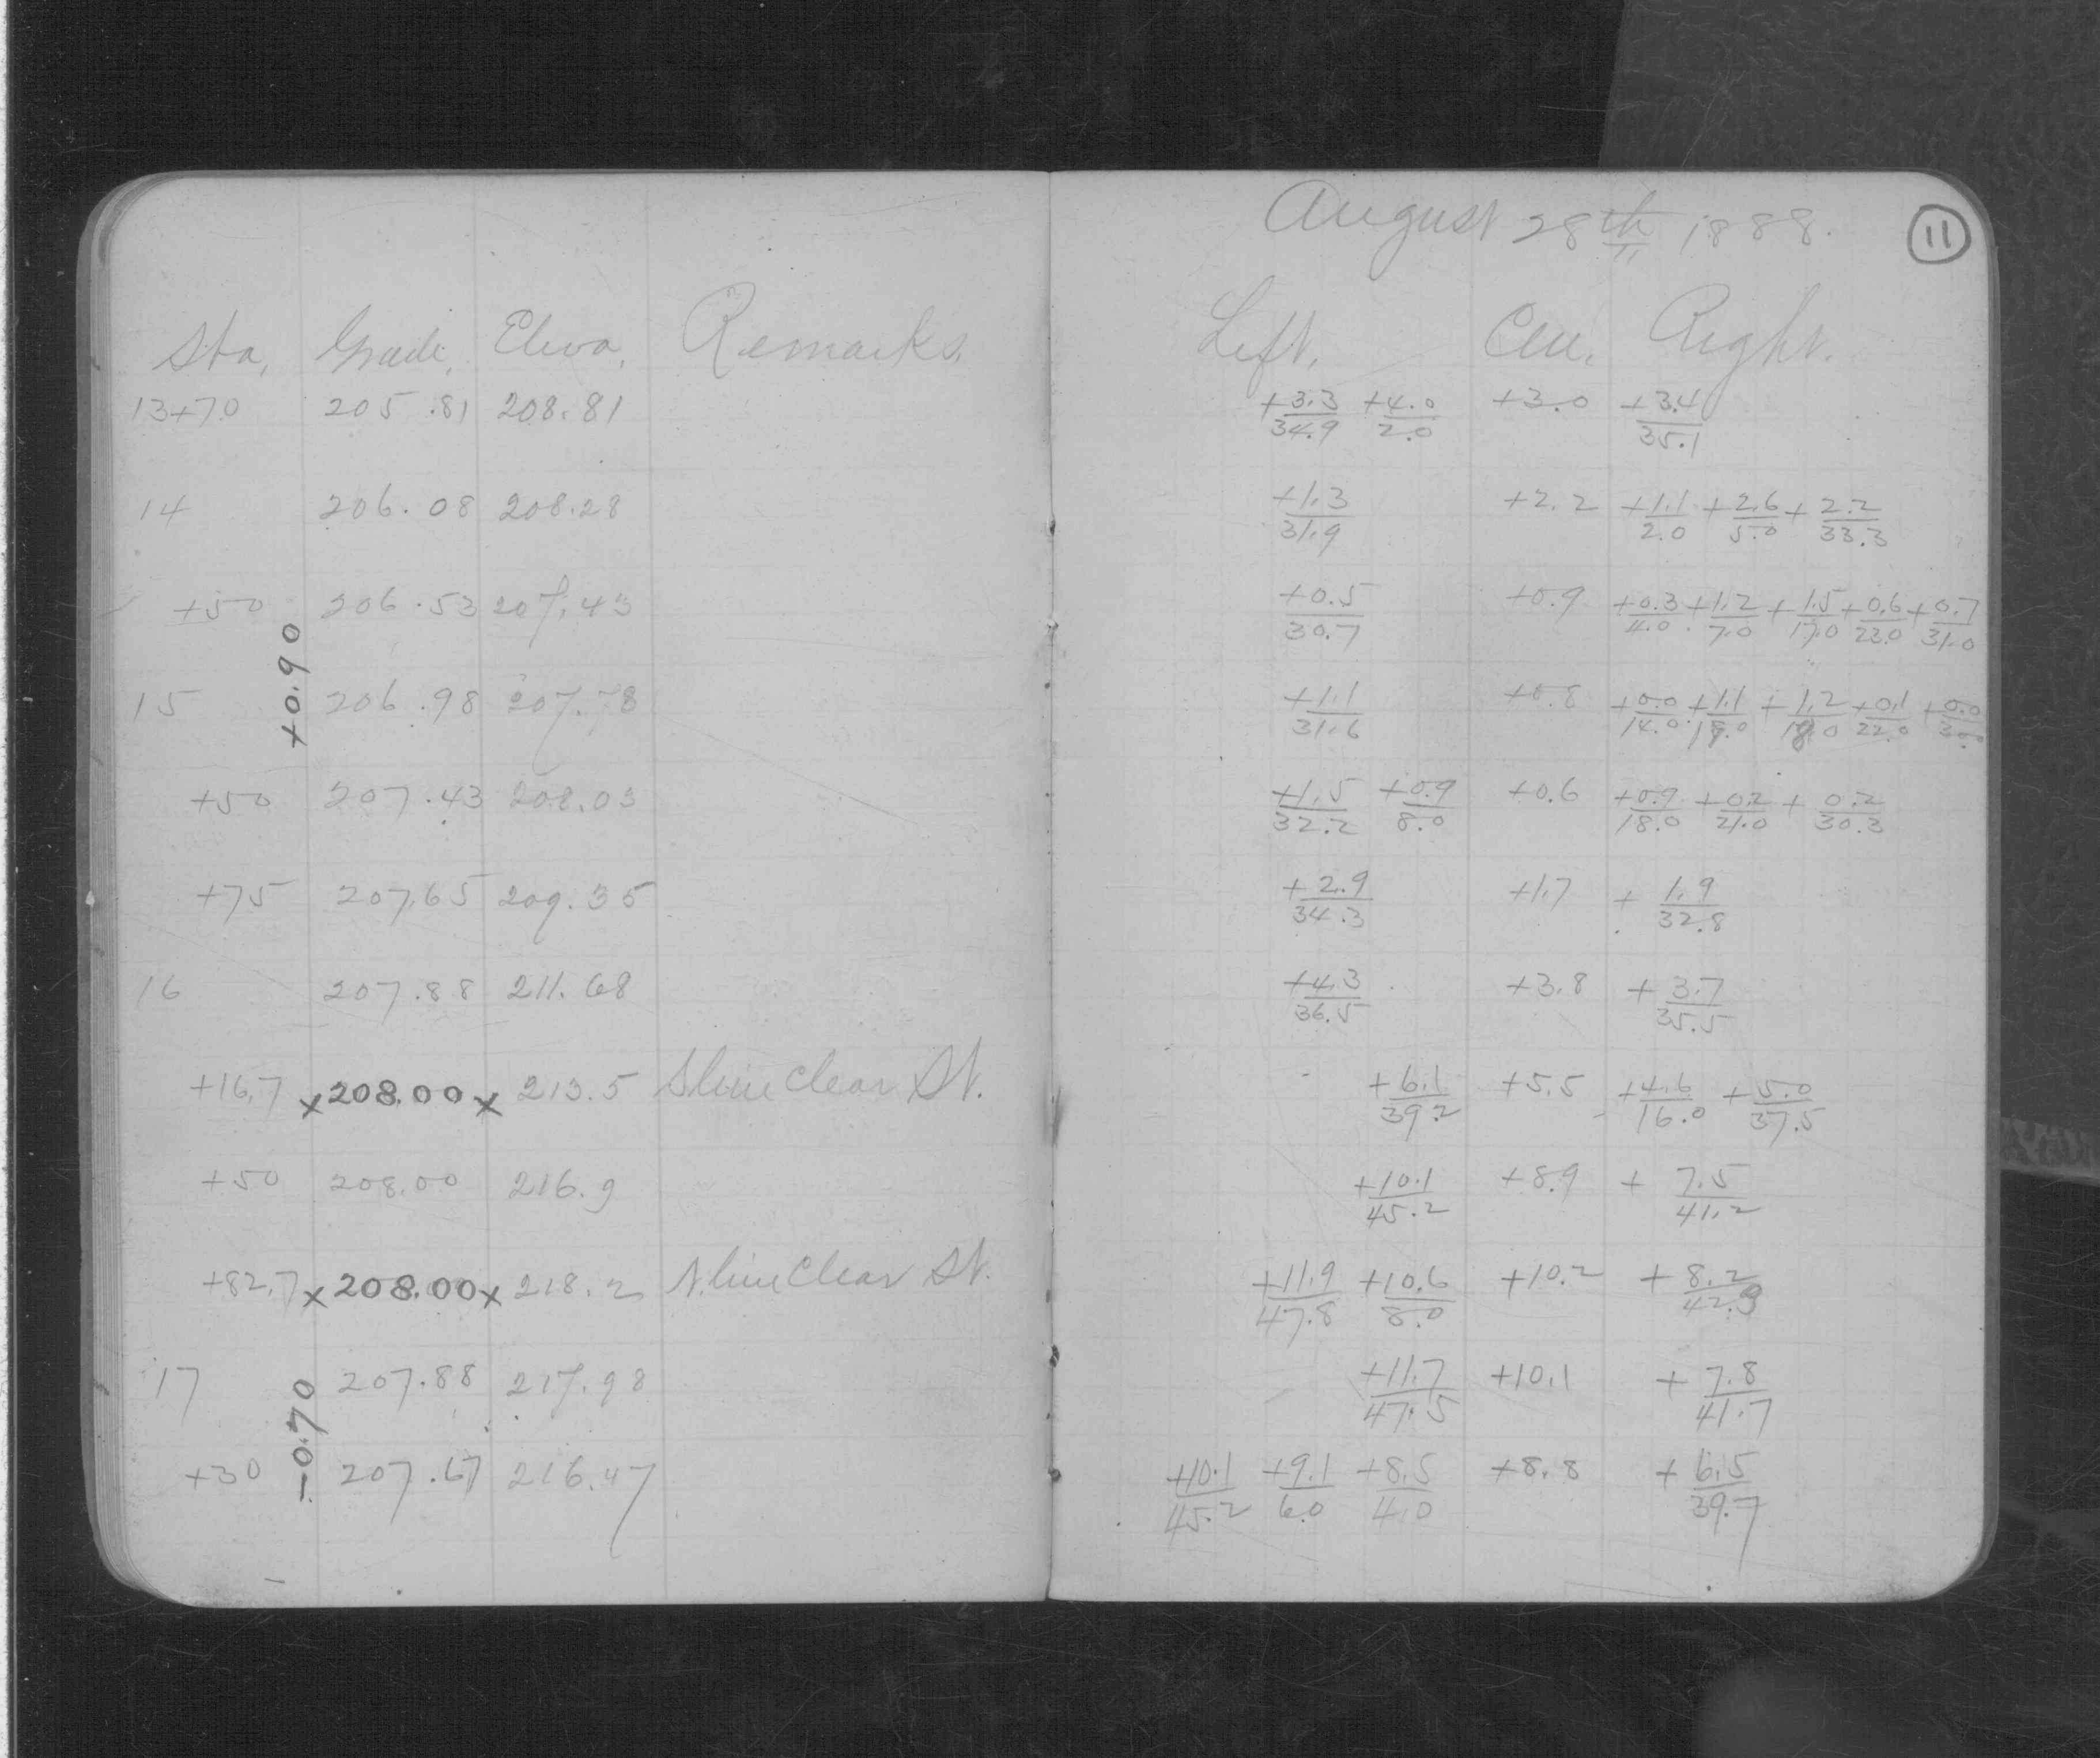 August 28th 1888.
11
Sta, Grade, Eleva, Remarks.
Left, Cen, Right.
13+70 205.81 208.81
+3.3/34.9 +4.0/2.0 +3.0 +3.4/35.1
14 206.08 208.28
+1.3/31.9 +2.2 +1.1/2.0 +2.6/5.0 +2.2/33.3
+50 206.53 207.43
+0.5/30.7 +0.9 +0.3/4.0 +1.2/7.0 +1.5/17.0 +0.6/23.0 +0.7/31.0
+0.90
15 206.98 207.78
+1.1/31.6 +0.8 +0.0/14.0 +1.1/15.0 +1.2/18.0 +0.1/22.0 +0.0/30.0
+50 207.43 208.03
+1.5/32.2 +0.9/8.0 +0.6 +0.9/18.0 +0.2/21.0 +0.2/30.3
+75 207.65 209.35
+2.9/34.3 +1.7 +1.9/32.8
16 207.88 211.68
+4.3/36.5 +3.8 +3.7/35.5
+16.7 x 208.00 x 213.5 S line Clear St.
+6.1/39.2 +5.5 +4.6/16.0 +5.0/37.5
+50 208.00 216.9
+10.1/45.2 +8.9 +7.5/41.2
+82.7 x 208.00 x 218.2 N. line Clear St.
+11.9/47.8 +10.6/8.0 +10.2 +8.2/42.3
17 207.88 217.98
+11.7/47.5 +10.1 +7.8/41.7
-0.70
+30 207.67 216.47
+10.1/45.2 +9.1/6.0 +8.5/4.0 +8.8 +6.5/39.7